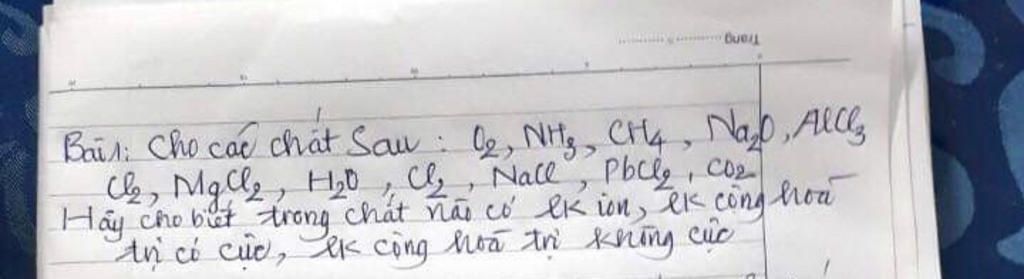 Trang
Bài 1: Cho các chất sau: O2, NH3, CH4, Na2O, AlCl3
Cl2, MgCl2, H2O, Cl2, NaCl, PbCl2, CO2
Hãy cho biết trong chất nào có lk ion, lk cộng hoá
trị có cực, lk cộng hoá trị không cực